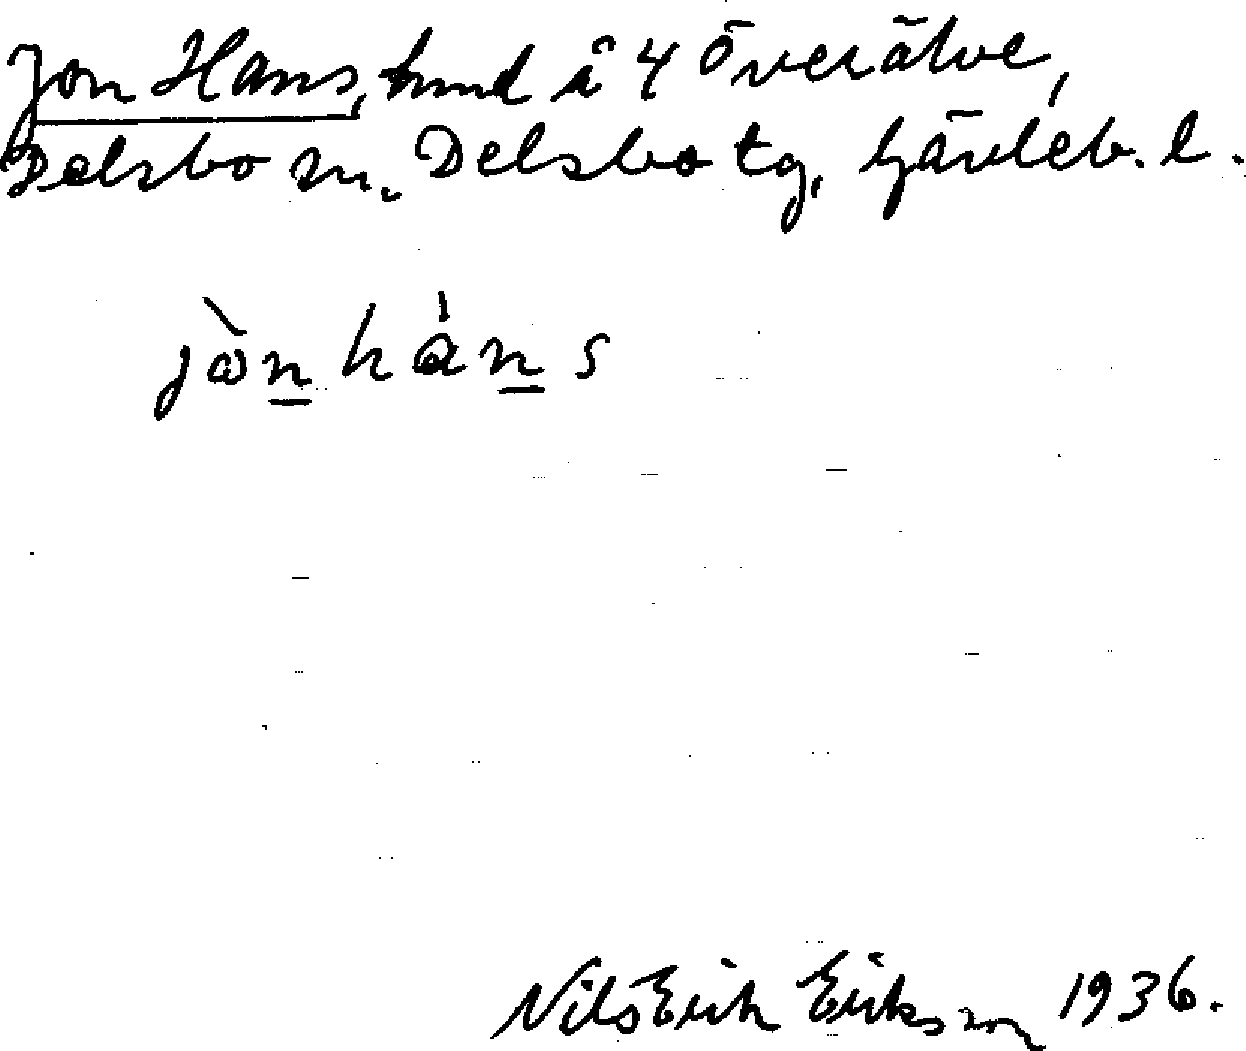 Jon Hans, hmd å 4 Överälve,
Delsbo sn. Delsbo tg, Gävleb. l.
jònháns
Nils Erik Eriksson 1936.